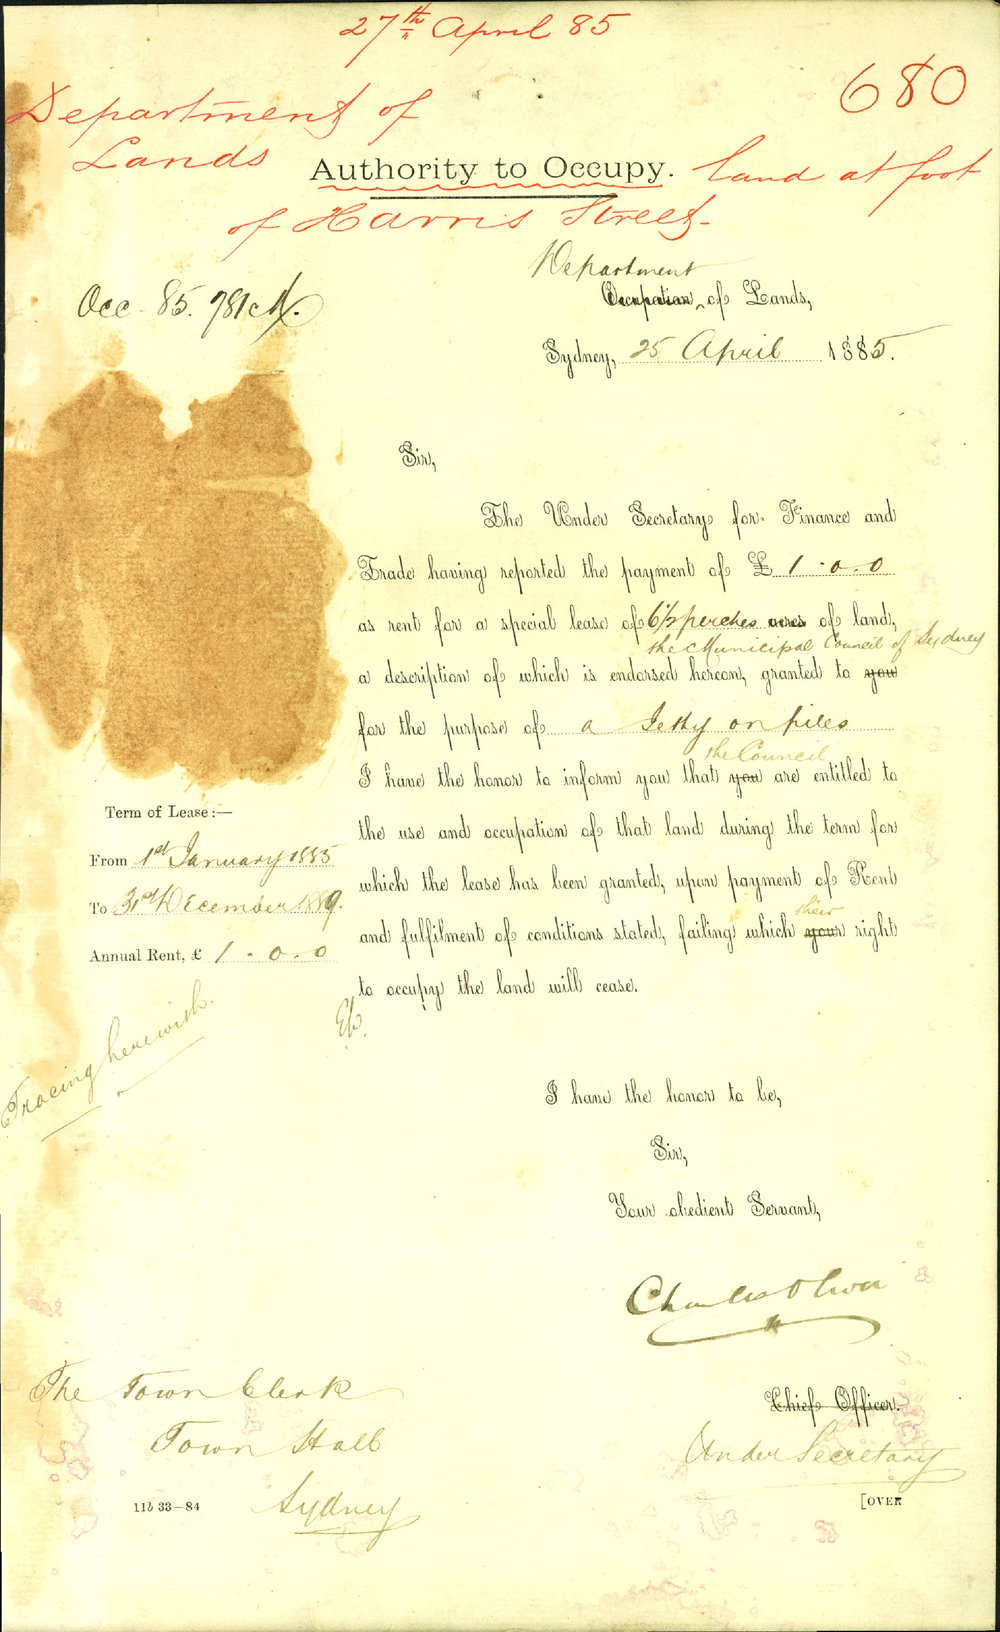 27th April 85
680
Department of
Lands
Authority to Occupy.
land at foot
of Harris Street.
Department
Occupation of Lands,
Occ. 85.
Sydney, 25 April 1885.
Sir,
The Under Secretary for Finance and
Trade having reported the payment of £ 1.0.0
as rent for a special lease of 6½ perches acres of land,
the Municipal Council of Sydney
a description of which is endorsed hereon, granted to you
for the purpose of a Jetty on piles
the Council
I have the honor to inform you that you are entitled to
the use and occupation of that land during the term for
which the lease has been granted, upon payment of Rent
their
and fulfilment of conditions stated, failing which your right
to occupy the land will cease.
Term of Lease:—
From 1st January 1885
To 31st December 1889.
Annual Rent, £ 1.0.0
Tracing herewith.
I have the honor to be,
Sir,
Your obedient Servant,
Charles Oliver
Chief Officer.
Under Secretary
The Town Clerk
Town Hall
Sydney
11b 33—84
[OVER